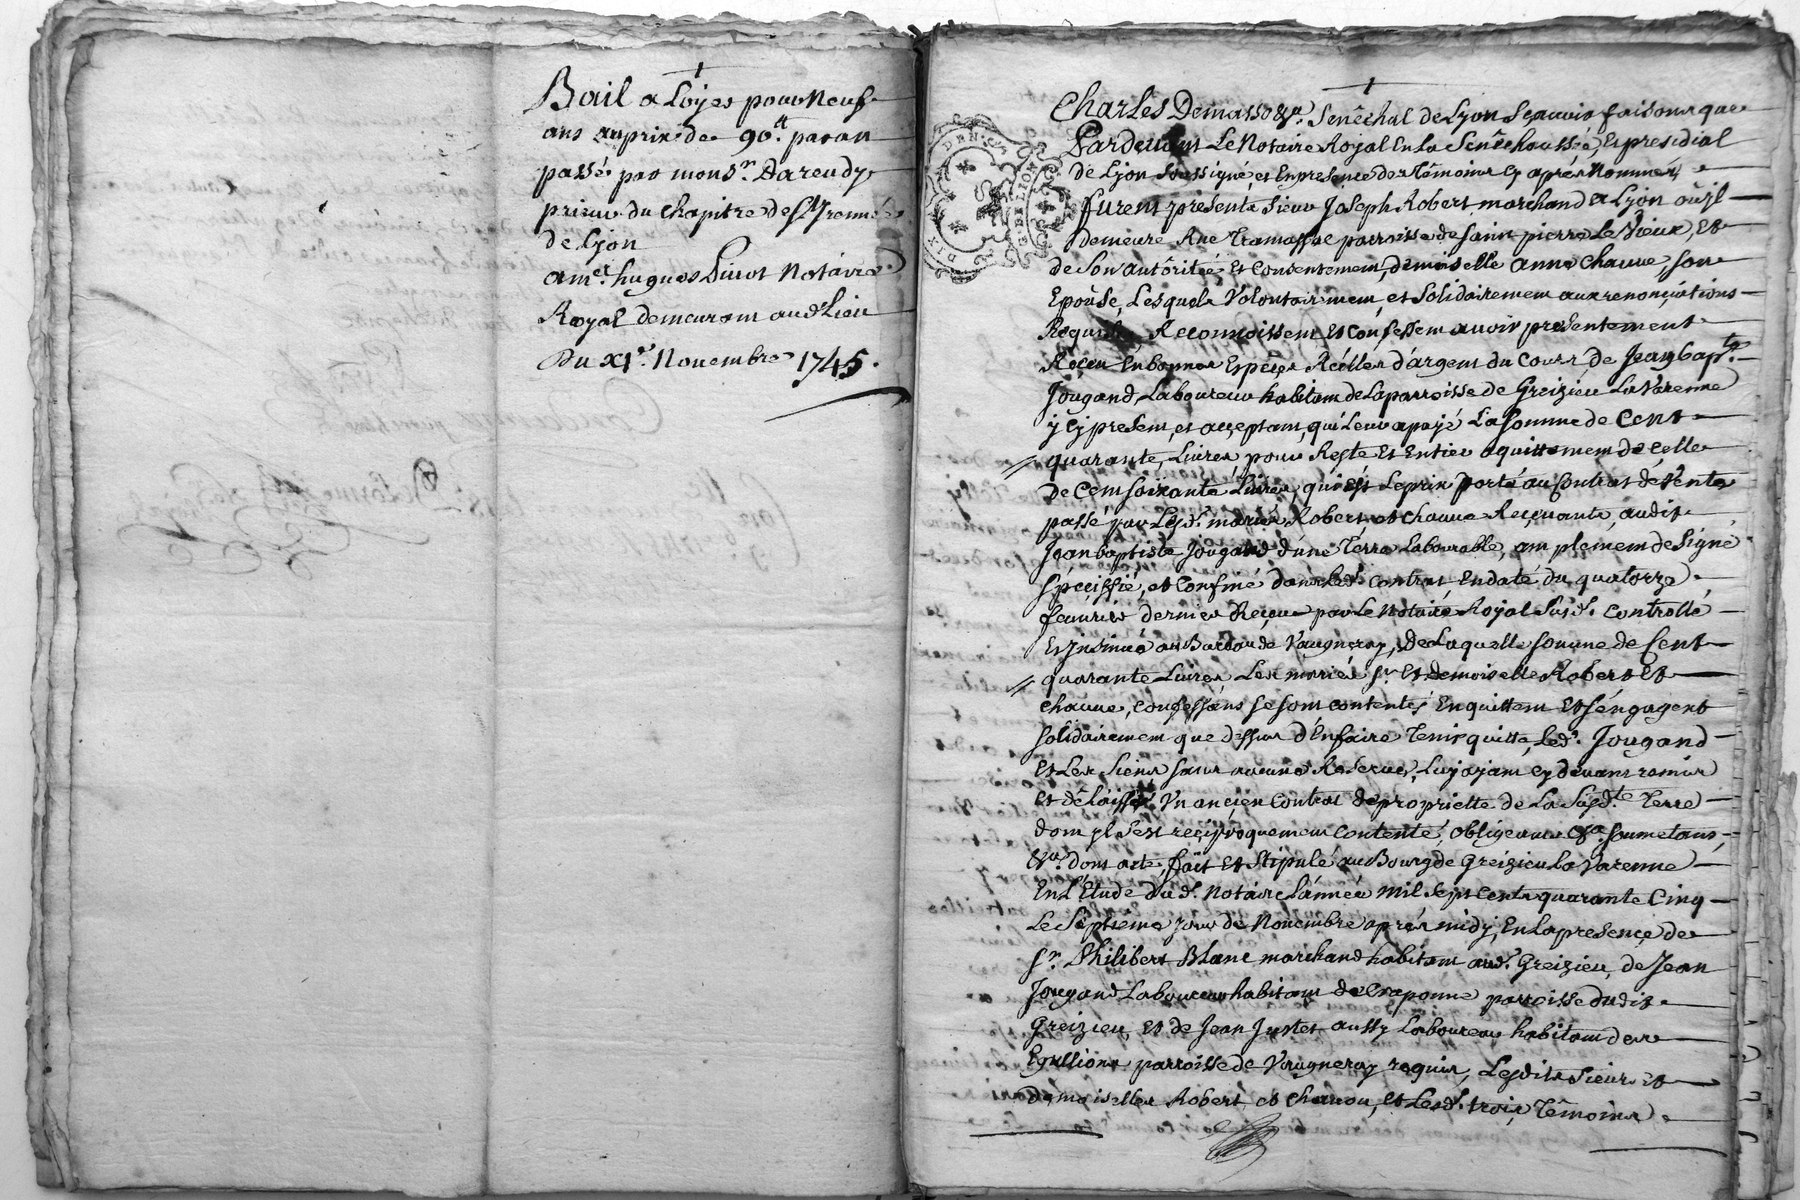 Bail a Loyer pour Neuf
ans au prix de 90.tt par an
passé par mons.r Dareudy
prieur du Chapitre de St Irennée
de Lyon
a m.e hugues Guiot Notaire
Royal demeurant aud. Lieu
Du XI.e Novembre 1745.
Charles Demasso &a. Senêchal de Lyon Sçavoir faisons que
Pardevant Le Notaire Royal En La Senêchaussée, Et presidial
de Lyon Soussigné, et En presence des Têmoins cy aprés Nommés,
furent presents Sieur Joseph Robert marchand a Lyon ou jl
demeure Rue Tramassac parroisse de Saint pierre Le Vieux, Et
de Son autôrité et Consentement, demoiselle anne Chauue, son
Epouse, Lesquels Volontairement, et Solidairement aux renonçiations
Requises, Reconnoissent et Confessent avoir presentement
Reçeu En bonnes Espéçes Réélles d'argent du Cours de Jean bapt.te
Jougand, Laboureur habitant de La parroisse de Greizieu La Varenne
y Cy present, et acçeptant, qui Leur a payé La Somme de Cent
quarante, Livres pour Reste et Entier aquittement de Celle
de Cent soixante Livres, qui est Le prix porté au Contrat de Vente
passé par Lesd. mariés Robert, et Chauue Reçeuante, audit
Jean baptiste Jougand d'une Terre Labourable, amplement designé
Spéciffié, et Confiné dans led. Contrat En date du quatorze
feuvrier dernier Reçeu par Le Notaire Royal Susd. Controllé
Et Insinué au Bureau de Vaugneray, De Laquelle somme de Cent
quarante Livres Les mariés Sr. et demoiselle Robert et
Chauue, Confessans se sont contentés En quittent Et s'engagent
Solidairement que dessus d'En faire Tenir quitte, Led. Jougand
Et Les Siens sans aucune Reserve, Luy ayant cy devant remis
et délaissé Un ancien Contrat de propriette de La Susd.te Terre
dont jl s'est reçiproquement Contenté, obligeans &a. soumetans,
&a. dont acte, fait et Stipulé au Bourg de Greizieu La Varenne
En L'Etude Dud. Notaire L'année mil Sept Cents quarante Cinq
Le Septieme jour de Novembre aprés midy, En La presençe de
Sr. Philibert Blanc marchand habitant aud. Greizieu, de Jean
Jougand Laboureur habitant de Craponne parroisse dudit
Greizieu, Et de Jean Justet aussy Laboureur habitant des
Egullions parroisse de Vaugneray requis, Lesdits Sieur et
demoiselles Robert et Chauue, et Lesd. trois Têmoins